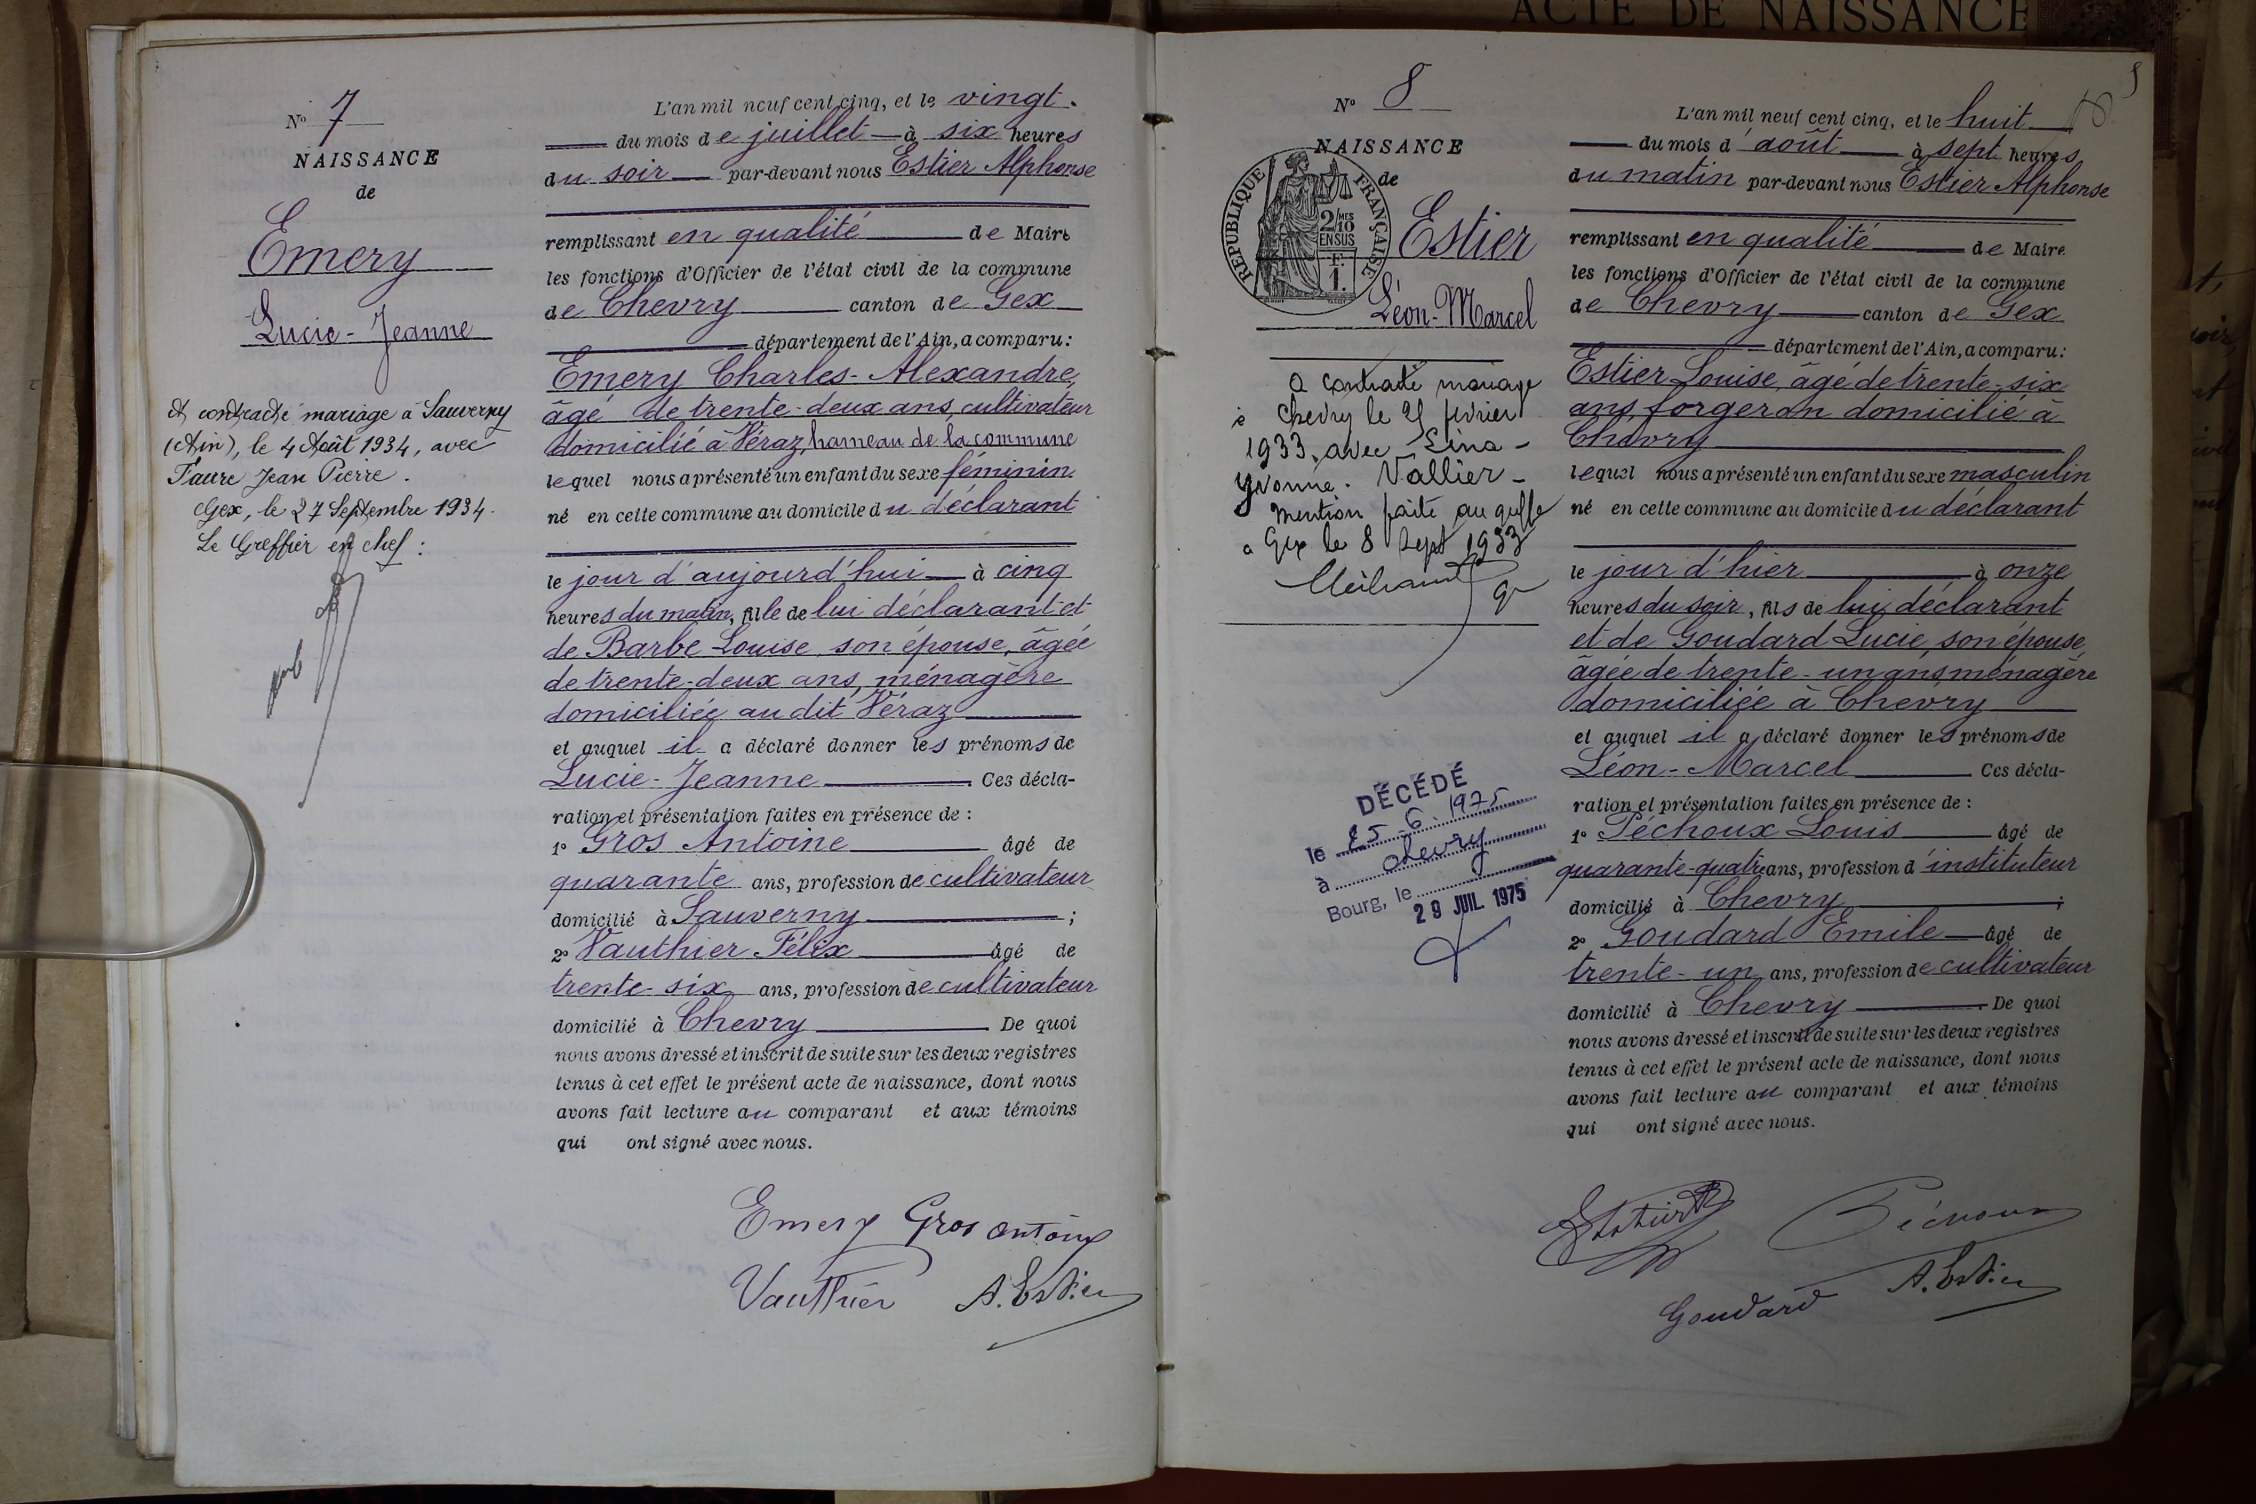 ACTE DE NAISSANCE
N° 7
NAISSANCE
de
Emery
Lucie-Jeanne
A contracté mariage à Sauverny
(Ain), le 4 Août 1934, avec
Faure Jean Pierre.
Gex, le 27 Septembre 1934.
Le Greffier en chef :
L'an mil neuf cent cinq, et le vingt.
du mois de juillet à six heures
du soir par-devant nous Estier Alphonse
remplissant en qualité de Maire
les fonctions d'Officier de l'état civil de la commune
de Chevry canton de Gex
département de l'Ain, a comparu :
Emery Charles-Alexandre,
âgé de trente-deux ans, cultivateur
domicilié à Véraz, hameau de la commune
lequel nous a présenté un enfant du sexe féminin
né en cette commune au domicile du déclarant
le jour d'aujourd'hui à cinq
heures du matin, fille de lui déclarant et
de Barbe Louise, son épouse, âgée
de trente-deux ans, ménagère
domiciliée au dit Véraz
et auquel il a déclaré donner les prénoms de
Lucie-Jeanne. Ces décla-
ration et présentation faites en présence de :
1° Gros Antoine âgé de
quarante ans, profession de cultivateur
domicilié à Sauverny ;
2° Vauthier Félix âgé de
trente-six ans, profession de cultivateur
domicilié à Chevry. De quoi
nous avons dressé et inscrit de suite sur les deux registres
tenus à cet effet le présent acte de naissance, dont nous
avons fait lecture au comparant et aux témoins
qui ont signé avec nous.
Emery Gros Antoine
Vauthier A. Estier
8
N° 8
NAISSANCE
de
RÉPUBLIQUE FRANÇAISE
2/10 MES
EN SUS
F.
1.
Estier
Léon-Marcel
a contracté mariage
à Chevry le 25 février
1933, avec Lina-
Yvonne. Vallier-
Mention faite au greffe
à Gex le 8 Sept 1933
DÉCÉDÉ
le 25-6.1975
à Chevry
Bourg, le
29 JUIL 1975
L'an mil neuf cent cinq, et le huit
du mois d'août à sept heures
du matin par-devant nous Estier Alphonse
remplissant en qualité de Maire
les fonctions d'Officier de l'état civil de la commune
de Chevry canton de Gex
département de l'Ain, a comparu :
Estier Louise, âgé de trente-six
ans, forgeron domicilié à
Chevry
lequel nous a présenté un enfant du sexe masculin
né en cette commune au domicile du déclarant
le jour d'hier à onze
heures du soir, fils de lui déclarant
et de Goudard Lucie, son épouse,
âgée de trente-un ans, ménagère
domiciliée à Chevry
et auquel il a déclaré donner les prénoms de
Léon-Marcel Ces décla-
ration et présentation faites en présence de :
1° Péchoux Louis âgé de
quarante-quatre ans, profession d'instituteur
domicilié à Chevry ;
2° Goudard Emile âgé de
trente-un ans, profession de cultivateur
domicilié à Chevry. De quoi
nous avons dressé et inscrit de suite sur les deux registres
tenus à cet effet le présent acte de naissance, dont nous
avons fait lecture au comparant et aux témoins
qui ont signé avec nous.
Estier Péchoux
Goudard A. Estier